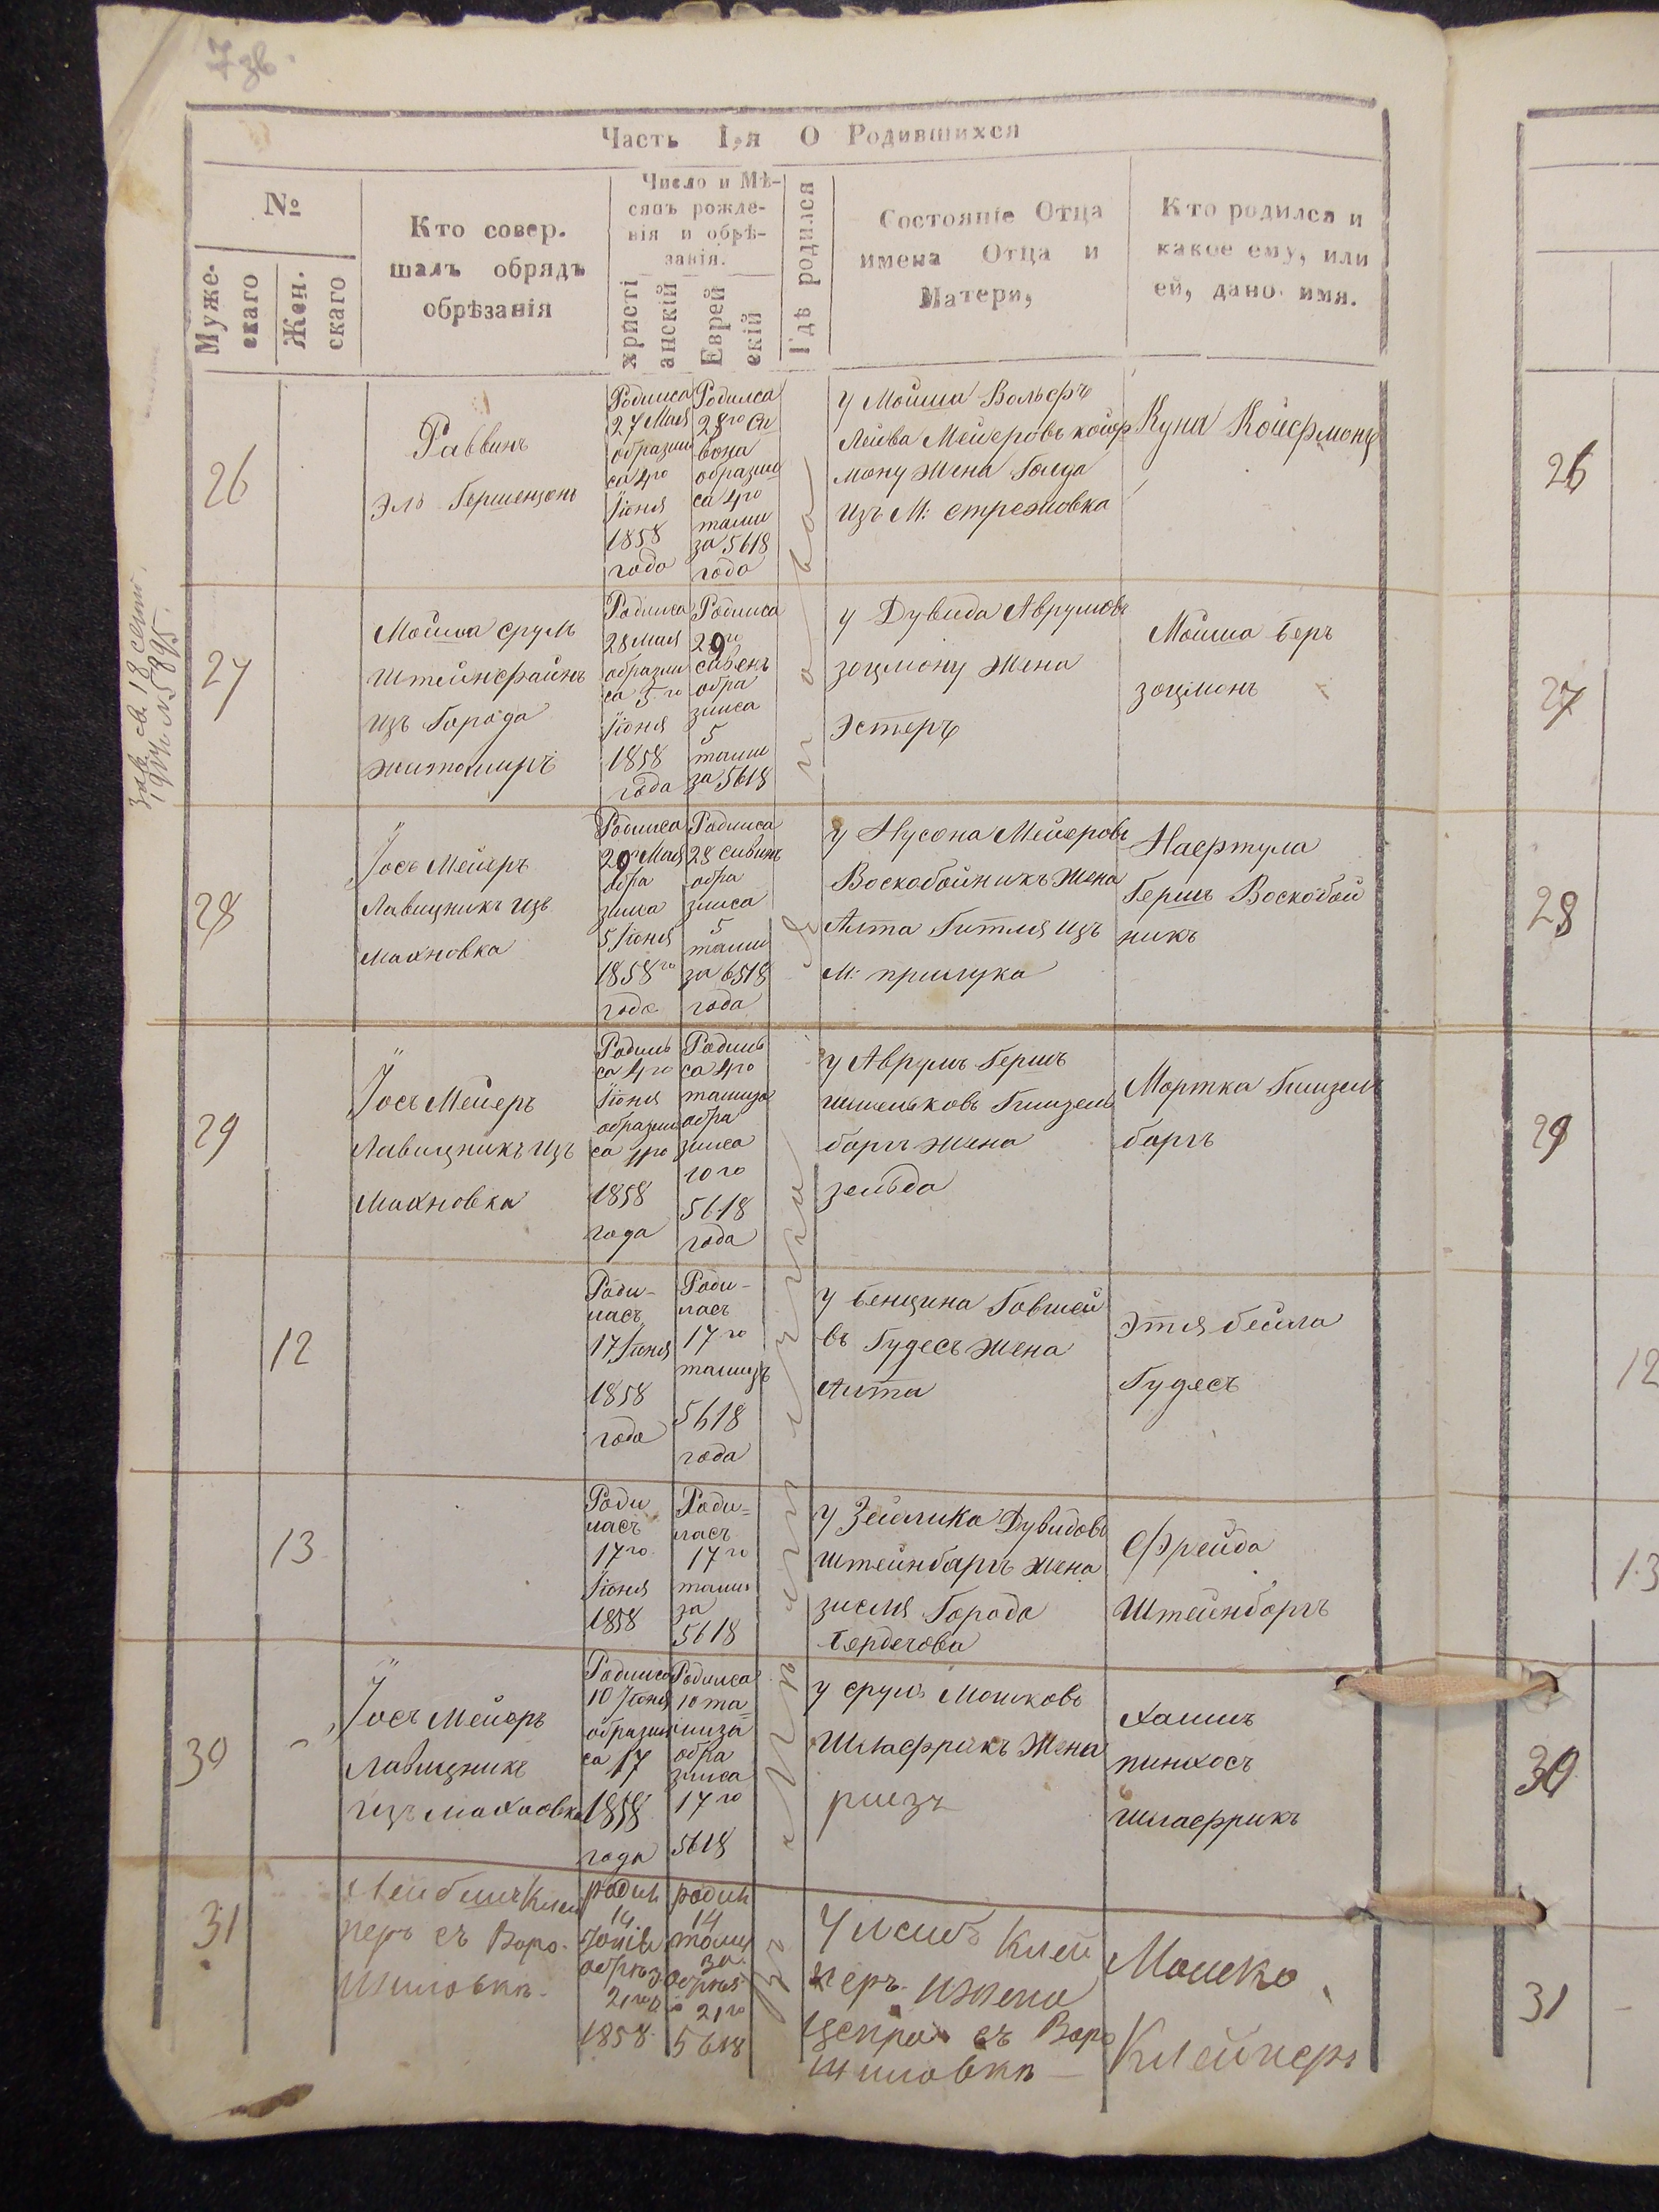 7 зв.
Часть I,я О Родившихся
№
Муже-
скаго
Жен.
скаго
Кто совер.
шалъ обрядъ
обрѣзанія
Число и Мѣ-
сяцъ рожде-
нія и обрѣ-
занія.
христі
анскій
Еврей
скій
Гдѣ родился
Состояніе Отца
имена Отца и
Матери,
Кто родился и
какое ему, или
ей, дано имя.
26
Раввинъ
Эль Гершензонъ
Родилса
27 Мая
образии
са 4го
Іюня
1858
года
Родилса
28го Си
вона
образии
са 4го
тами
за 5618
года
у Мойша Вольфъ
Лейва Мейеровъ койф
ману Жена Голда
изъ М: стрежовка
Куна Койфмонъ
27
Мойша срулъ
Штейнфайнъ
изъ Города
житомиръ
Родилса
28 мая
образии
са 5го
Іюня
1858
года
Родилса
29го
сивенъ
обра
зилса
5
тами
за 5618
у Дувида Аврумовъ
зоцмону Жена
Эстеръ
Мойша Беръ
зоцмонъ
28
Іосъ Мейеръ
Лавицникъ изъ
Махновка
Родилса
29 Мая
обра
зилса
5 Іюня
1858го
года
Родилса
28 сивинъ
обра
зилса
5
тами
за 6518
года
у Нусона Мейеровъ
Воскобойникъ Жена
Алта Гитля изъ
М: прилука
Нафтула
Гершъ Воскобой
никъ
29
Іосъ Мейеръ
Лавицникъ изъ
Махновка
Родиль
са 4го
Іюня
образии
са
1858
года
Родиль
са 4го
тамиза
обра
зилса
10го
5618
года
у Аврумъ Гершъ
Гинзель
баргъ жена
зельда
Мортка Гинзель
баргъ
12
Роди-
ласъ
17 Іюня
1858
года
Роди-
ласъ
17го
тамизъ
5618
года
у Бенцина Говшей
въ Гудесъ Жена
Алта
Этля бейла
Гудесъ
13
Роди
ласъ
17го
Іюня
1858
Роди=
ласъ
17го
тами
за
5618
у Зейлика Дувидовъ
Штейнбаргъ жена
зисля Города
Бердечова
Фрейда
Штейнбаргъ
30
Іосъ Мейеръ
Лавицникъ
изъ махновка
Родилса
10 Іюня
образии
са 17
1858
года
Родилса
10 та=
миза
обра
зилса
17го
5618
у срулъ Мошковъ
Шлафрикъ Жена
Хаимъ
пинхосъ
шлафрикъ
31
Клей
неръ съ Воро-
шиловкы.
родил
14
обрѣз
21го
1858
родил
14
тами
за
обрѣз
21го
5618
У Клей
неръ и жена
съ Воро
шиловкы
Мошко
Клейнеръ
26
27
28
29
12
13
30
31